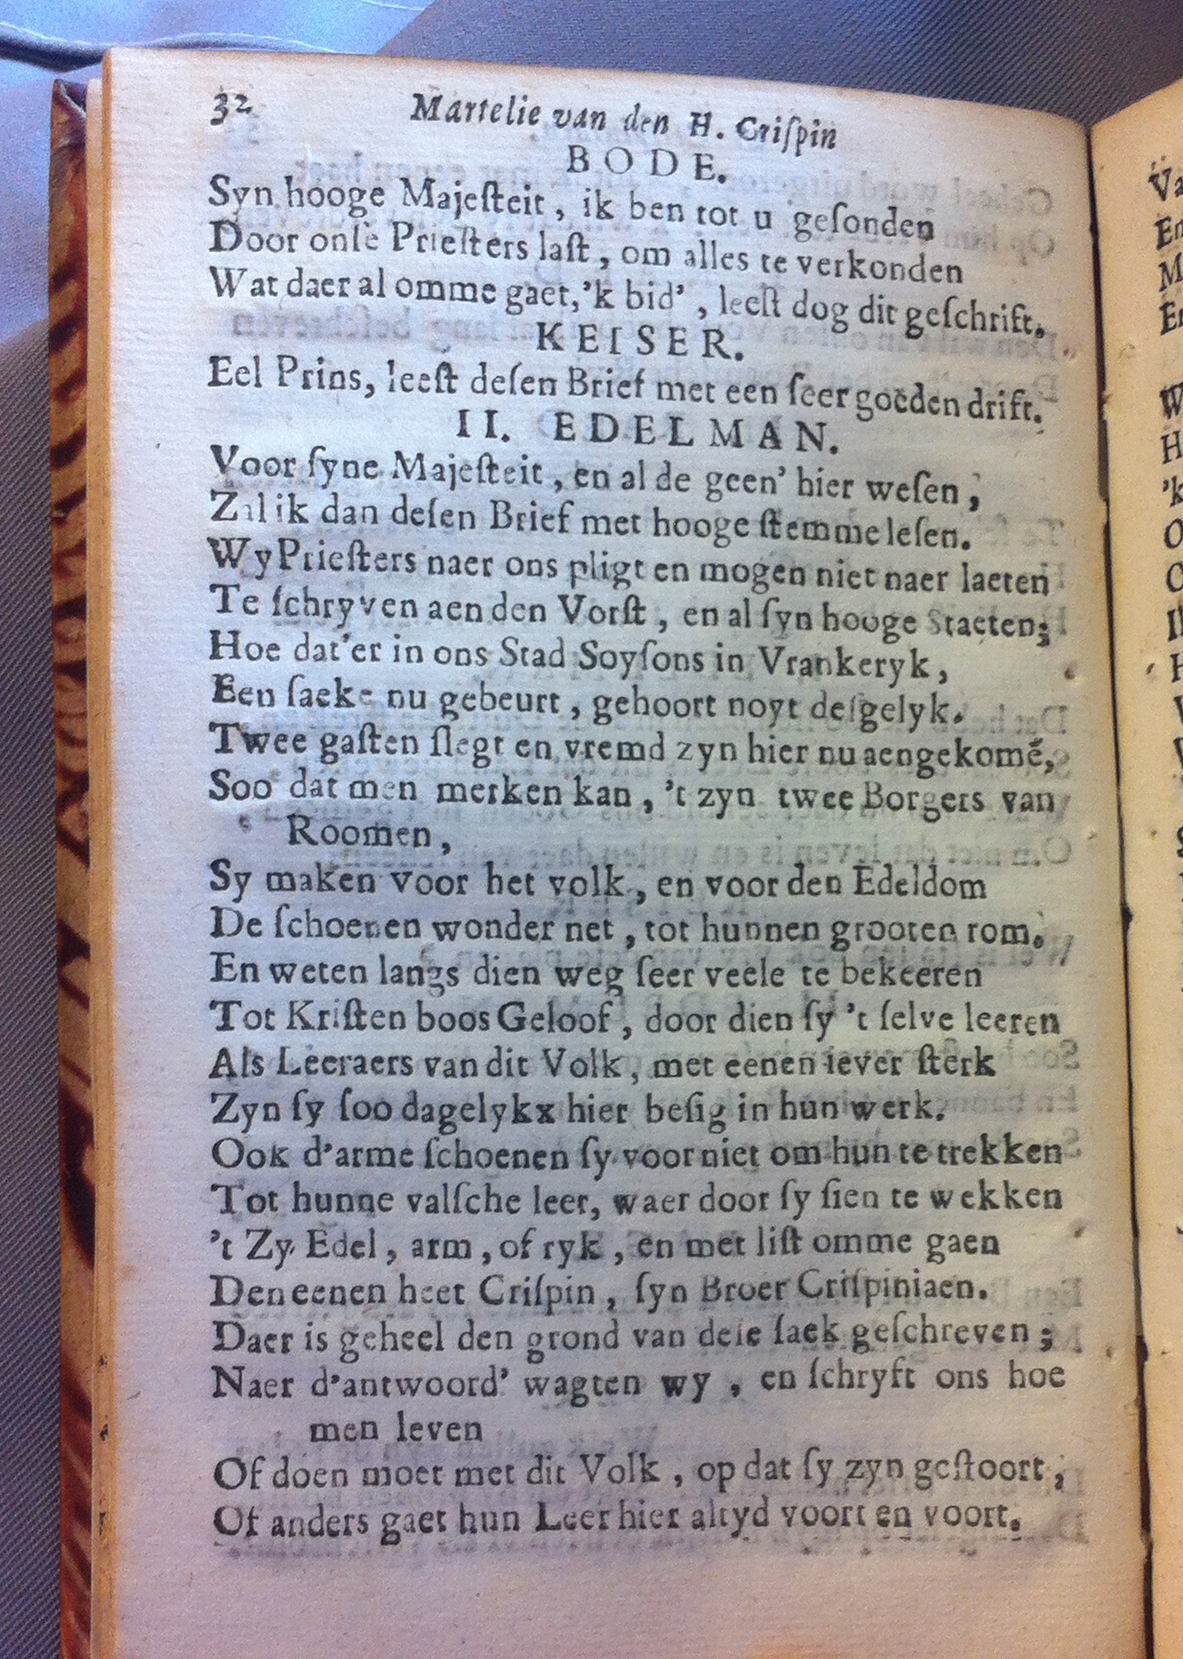 32 Martelie van den H. Criſpin
BODE.
Syn hooge Majeſteit, ik ben tot u geſonden
Door onſe Prieſters laſt, om alles te verkonden
Wat daer al omme gaet, 'k bid', leeſt dog dit geſchrift.
KEISER.
Eel Prins, leeſt deſen Brief met een ſeer goeden drift.
II. EDELMAN.
Voor ſyne Majeſteit, en al de geen' hier weſen,
Zal ik dan deſen Brief met hooge ſtemme leſen.
Wy Prieſters naer ons pligt en mogen niet naer laeten
Te ſchryven aen den Vorſt, en al ſyn hooge Staeten;
Hoe dat'er in ons Stad Soyſons in Vrankeryk,
Een ſaeke nu gebeurt, gehoort noyt deſgelyk.
Twee gaſten ſlegt en vremd zyn hier nu aengekomē,
Soo dat men merken kan, 't zyn twee Borgers van
Roomen,
Sy maken voor het volk, en voor den Edeldom
De ſchoenen wonder net, tot hunnen grooten rom.
En weten langs dien weg ſeer veele te bekeeren
Tot Kriſten boos Geloof, door dien ſy 't ſelve leeren
Als Leeraers van dit Volk, met eenen iever ſterk
Zyn ſy ſoo dagelykx hier beſig in hun werk.
Ook d'arme ſchoenen ſy voor niet om hun te trekken
Tot hunne valſche leer, waer door ſy ſien te wekken
't Zy Edel, arm, of ryk, en met liſt omme gaen
Den eenen heet Criſpin, ſyn Broer Criſpiniaen.
Daer is geheel den grond van deſe ſaek geſchreven;
Naer d'antwoord' wagten wy, en ſchryft ons hoe
men leven
Of doen moet met dit Volk, op dat ſy zyn geſtoort,
Of anders gaet hun Leer hier altyd voort en voort.